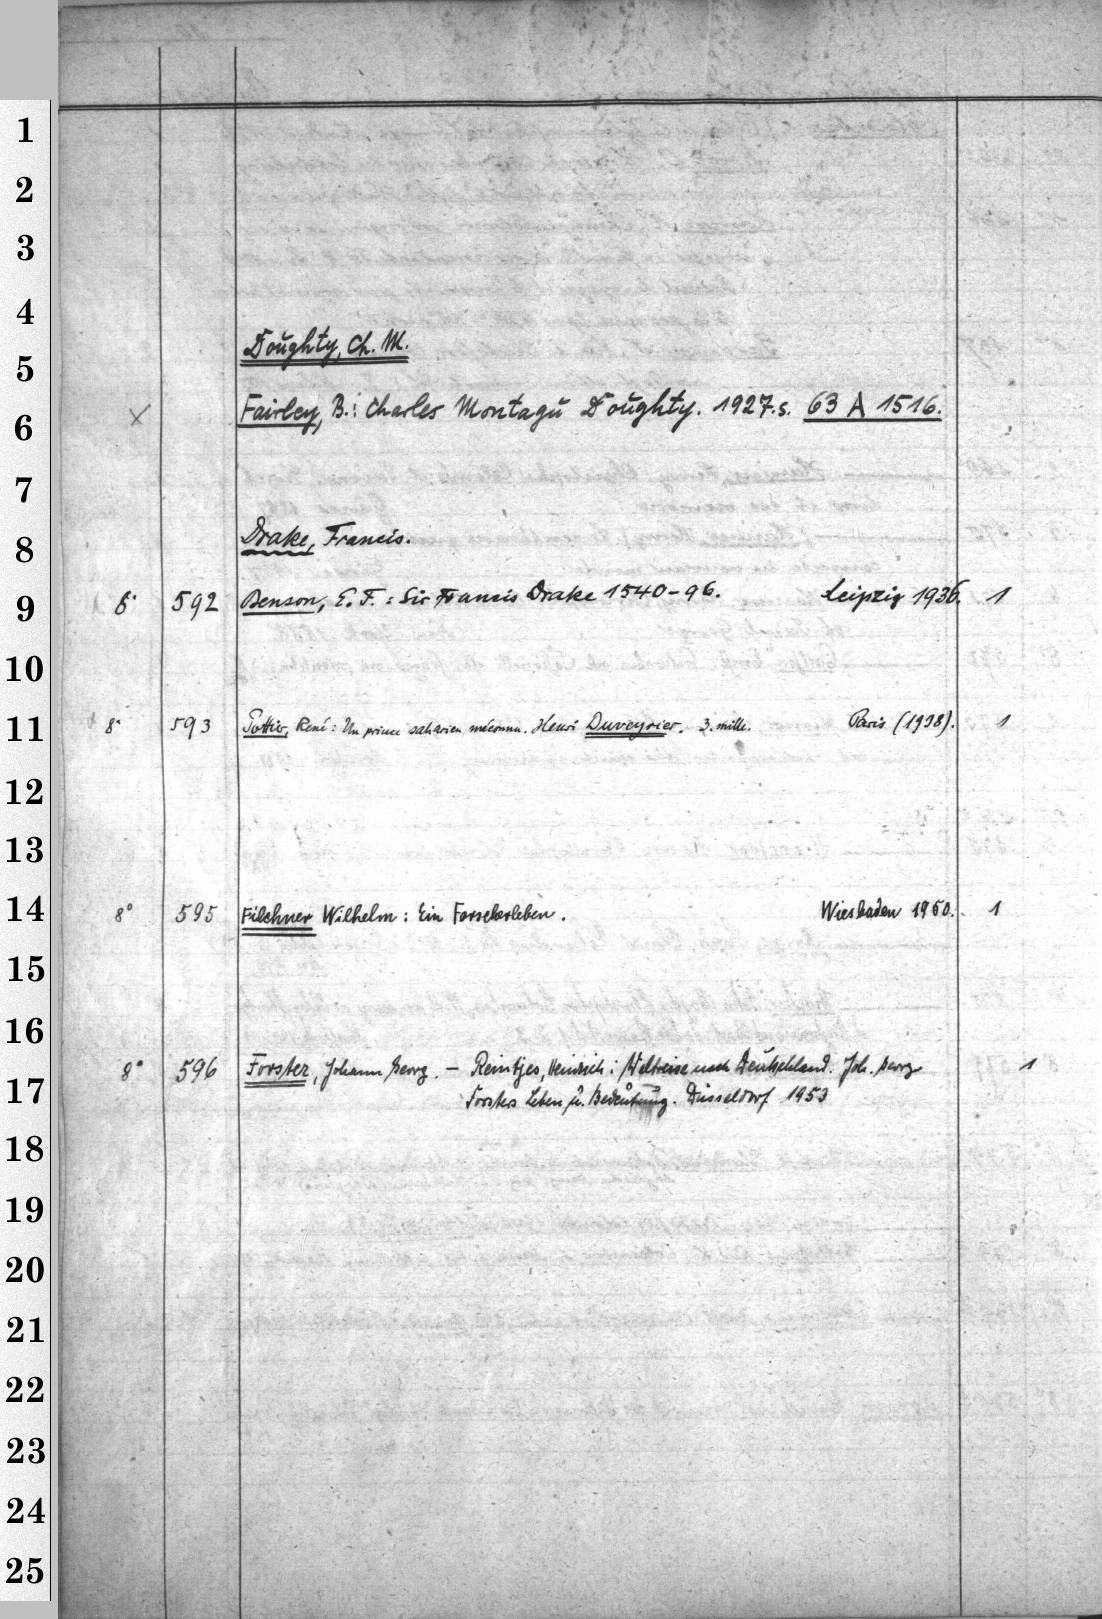 1
2
3
4
Doughty, Ch. M.
5
Fairley, B.: Charles Montagu Doughty. 1927. s. 63 A 1516.
6
7
Drake, Francis.
8
8° 592 Benson, E. F.: Sir Francis Drake 1540-96. Leipzig 1936. 1
9
10
8° 593 Pottier, René: Un prince saharien méconnu. Henri Duveyrier. 3. mille. Paris (1938). 1
11
12
13
8° 595 Filchner Wilhelm: Ein Forscherleben. Wiesbaden 1950. 1
14
15
16
8° 596 Forster, Johann Georg. — Reintjes, Heinrich: Weltreise nach Deutschland. Joh. Georg 1
17
Forsters Leben u. Bedeutung. Düsseldorf 1953
18
19
20
21
22
23
24
25